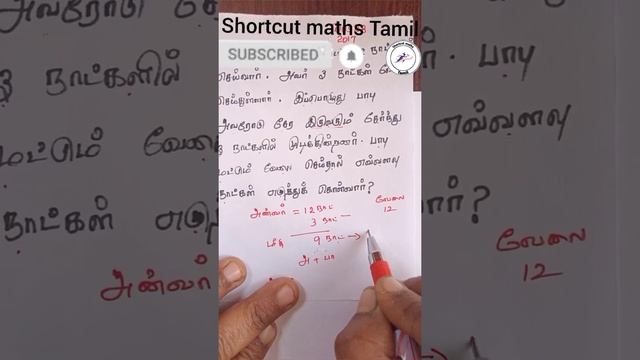 Shortcut maths Tamil
2017
SUBSCRIBED
செய்வார். அவர் 3 நாட்கள்
செய்துள்ளார். இப்பொழுது பாபு
அவரோடு சேர இருவரும் சேர்ந்து
3 நாட்களில் முடிக்கின்றனர். பாபு
மட்டும் வேலை செய்தால் எவ்வளவு
நாட்கள் எடுத்துக் கொள்வார்?
அன்வர் = 12 நாட் வேலை
3 நாட் — 12
மீதி 9 நாட் →
அ + பா